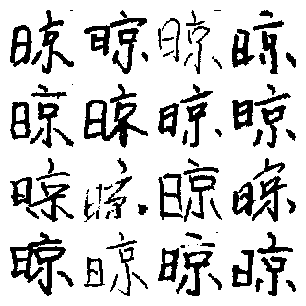 晾晾晾晾
晾晾晾晾
晾晾晾晾
晾晾晾晾